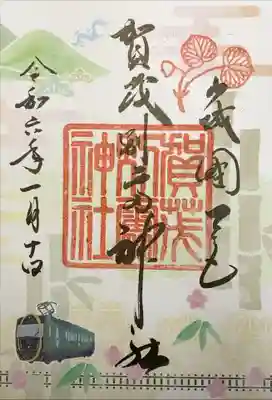 山城國一宮
賀茂別雷神社
賀茂別雷神社
令和六年一月